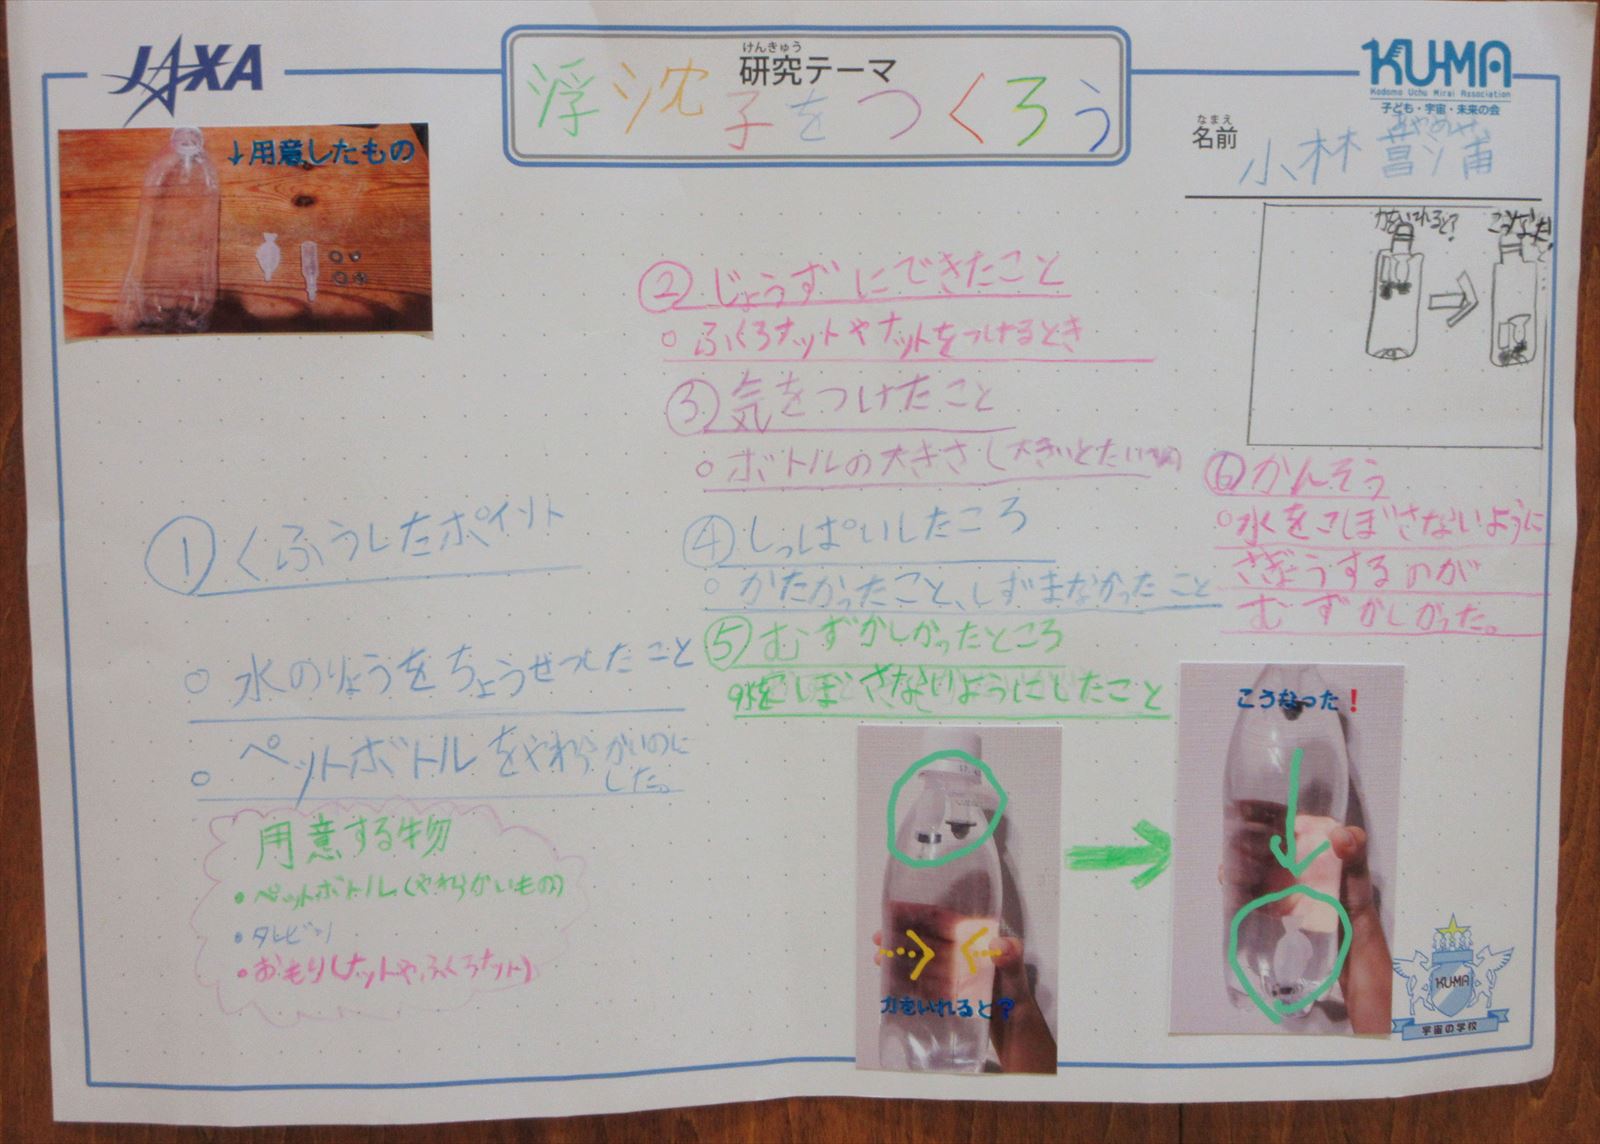 JAXA
けんきゅう
研究テーマ
浮沈子をつくろう
KU-MA
Kodomo Uchu Mirai Association
子ども・宇宙・未来の会
なまえ
名前
あやめ
小林 菖蒲
↓用意したもの
力をいれると?
こうなった!
①くふうしたポイント
○水のりょうをちょうせつしたこと
○ペットボトルをやわらかいのに
した。
用意する物
・ペットボトル(やわらかいもの)
・タレビン
・おもり(ナットや、ふくろナット)
②じょうずにできたこと
○ふくろナットやナットをつけるとき
③気をつけたこと
○ボトルの大きさ(大きいとたいへん)
④しっぱいしたころ
○かたかったこと、しずまなかったこと
⑤むずかしかったところ
○水をこぼさないようにしたこと
⑥かんそう
○水をこぼさないように
さぎょうするのが
むずかしかった。
力をいれると?
こうなった!
KU-MA
宇宙の学校